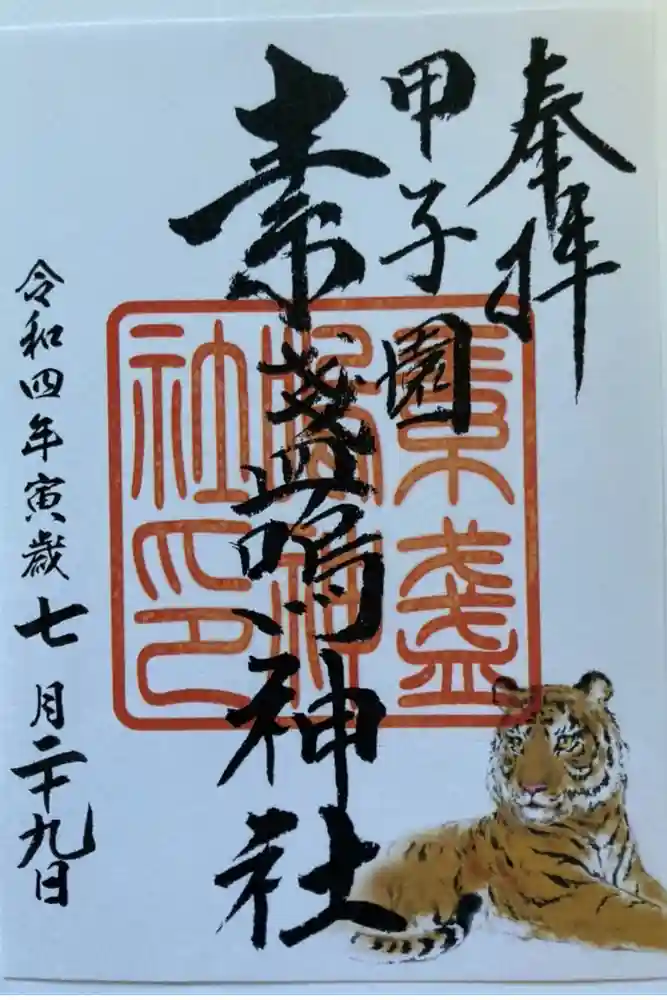 奉拝
甲子園
素盞嗚神社
令和四年寅歳七月二十九日
素盞
嗚神
社印